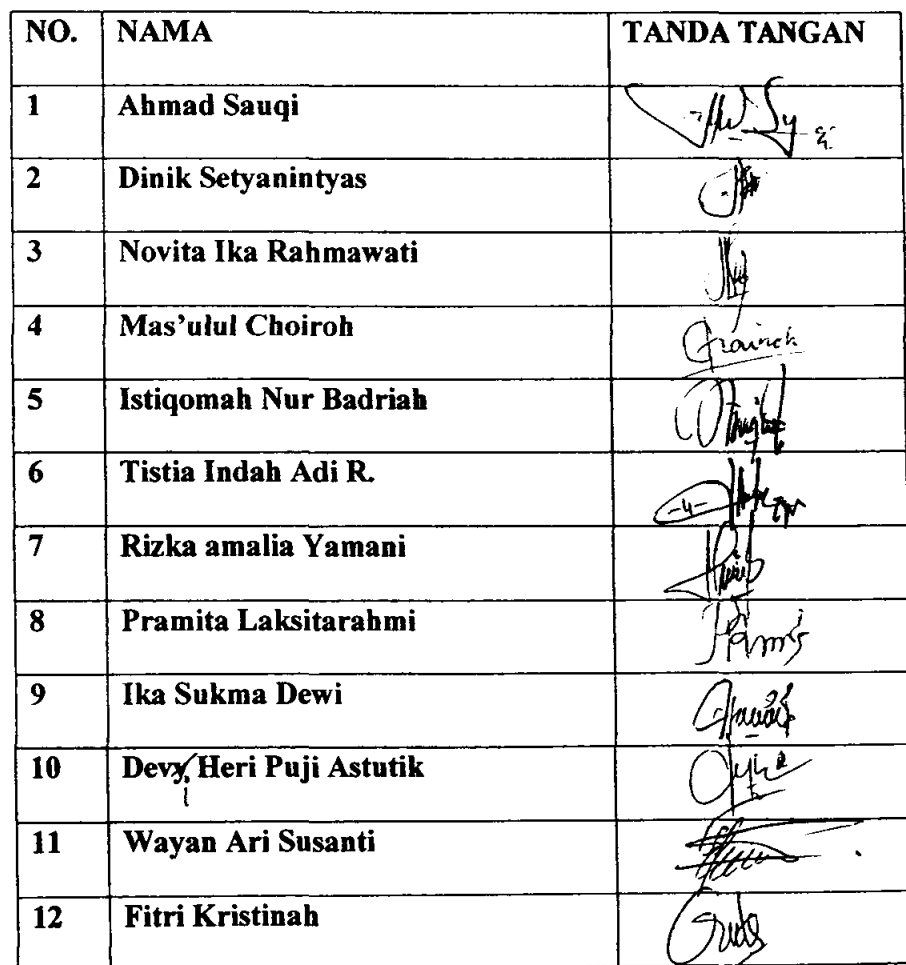 NO. NAMA TANDA TANGAN
1 Ahmad Sauqi
2 Dinik Setyanintyas
3 Novita Ika Rahmawati
4 Mas'ulul Choiroh
5 Istiqomah Nur Badriah
6 Tistia Indah Adi R.
7 Rizka amalia Yamani
8 Pramita Laksitarahmi
9 Ika Sukma Dewi
10 Devy Heri Puji Astutik
i
11 Wayan Ari Susanti
12 Fitri Kristinah